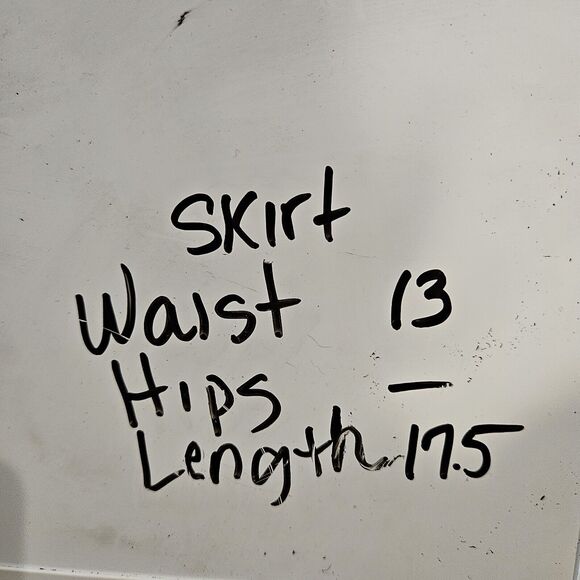 Skirt
Waist 13
Hips —
Length 17.5